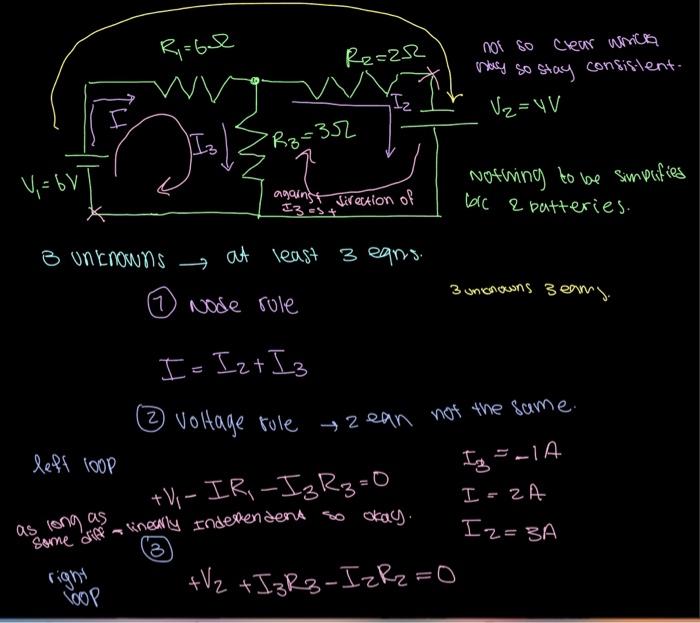 R₁=6Ω
R₂=2Ω
not so clear which
way so stay consistent.
I
I₃
R₃=3Ω
I₂
V₂=4V
V₁=6V
against direction of
I₃ = so +
Nothing to be simplifies
b/c 2 batteries.
3 unknowns → at least 3 eqns.
① Node rule
3 unknowns 3 eqns.
I = I₂+I₃
② Voltage rule → 2 eqn not the same.
left loop
+V₁-IR₁-I₃R₃=0
I₃ = -1A
I = 2A
I₂=3A
as long as
some diff - linearly independent so okay.
③
right
loop
+V₂+I₃R₃-I₂R₂=0